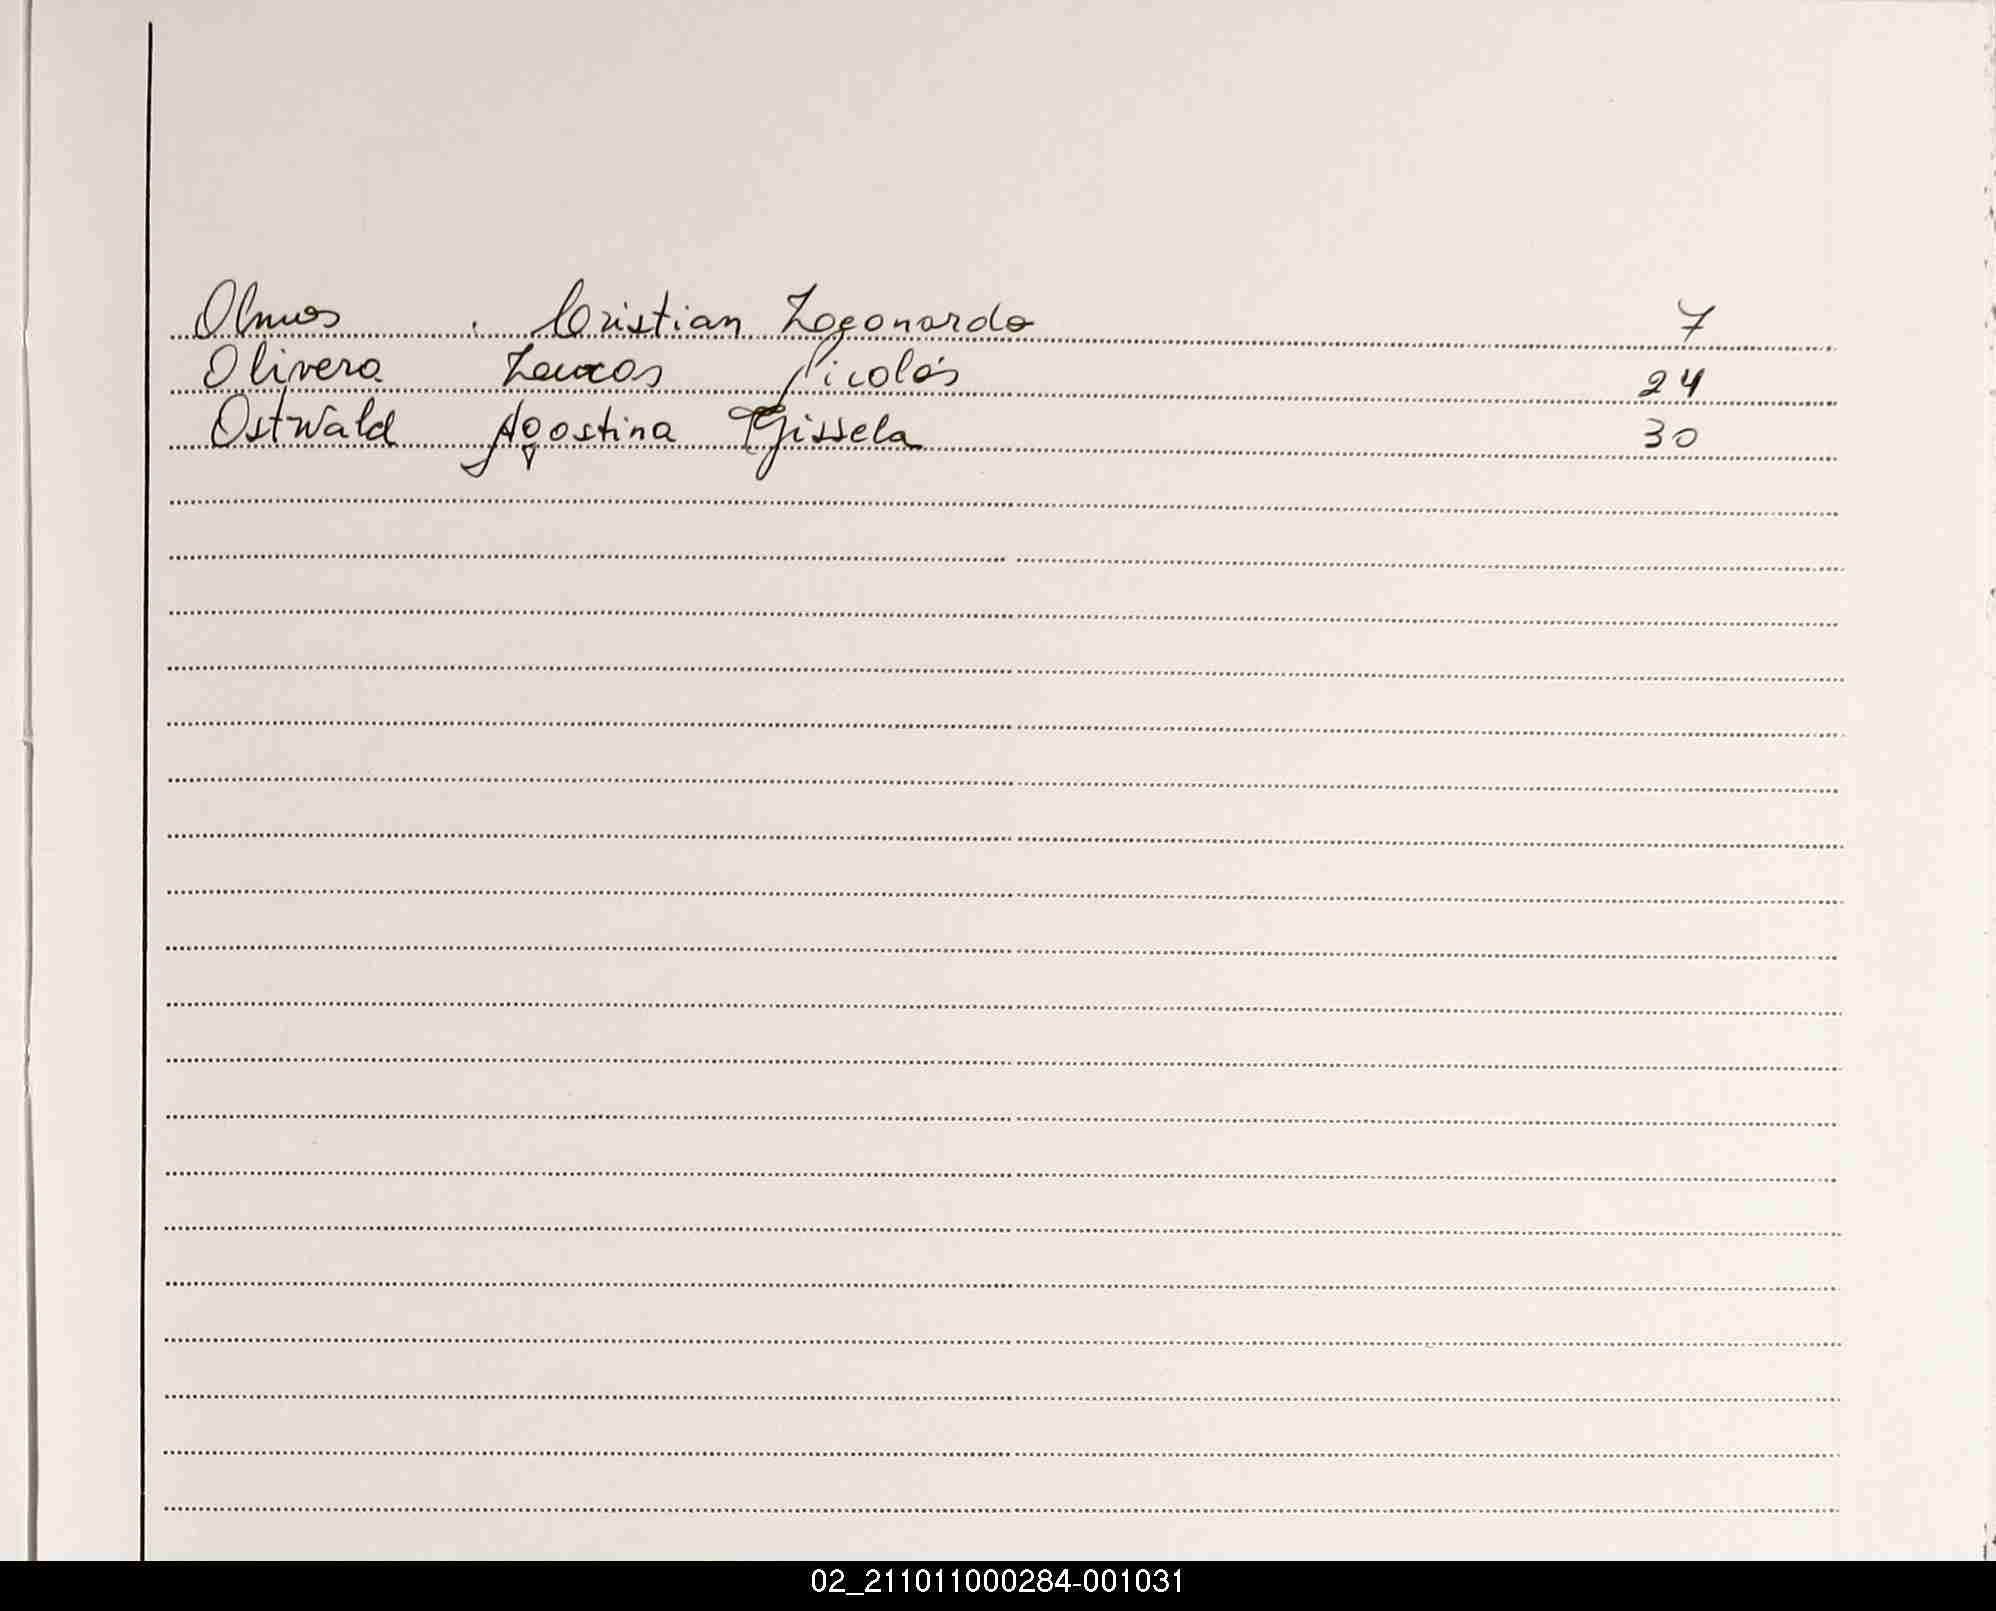 Olmos Cristian Leonardo 7
Olivera Lucas Nicolás 24
Ostwald Agostina Gissela 30
02_211011000284-001031